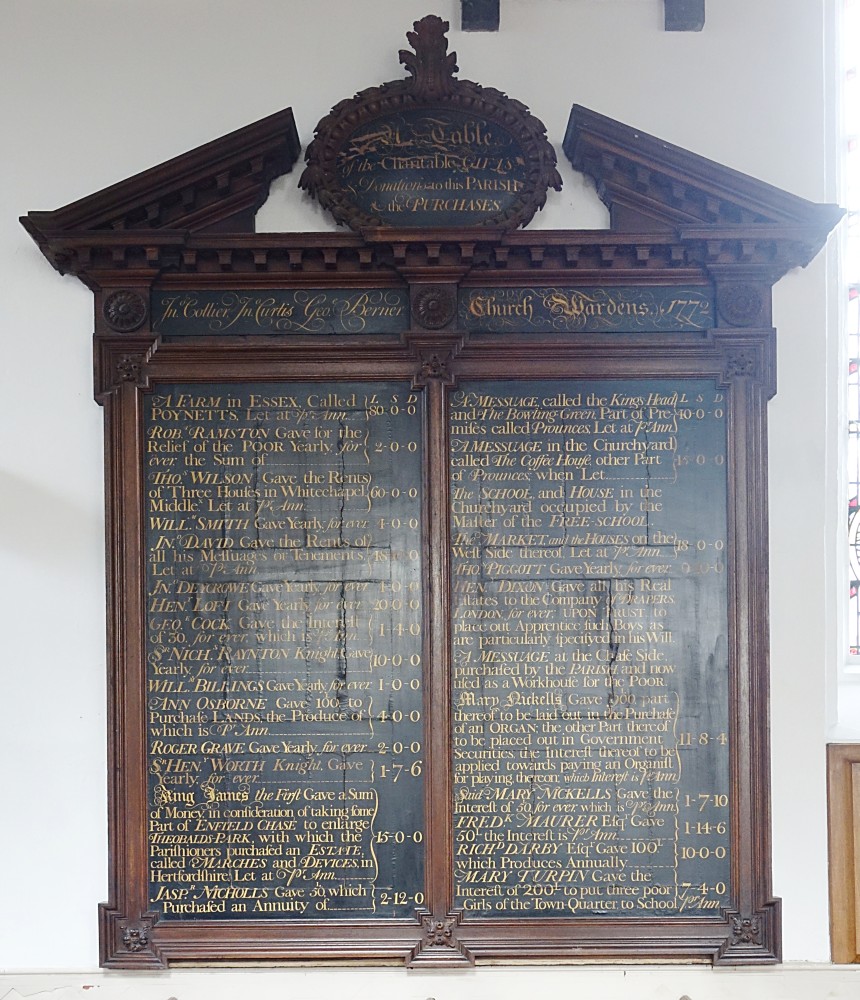 A Table
of the Charitable GIFTS
& Donations to this PARISH
& the PURCHASES.
Jn.º Collier, Jn.º Curtis Geo. Berner
Church Wardens, 1772
L S D
A FARM in ESSEX, Called
POYNETTS, Let at Pr. Ann. 80-0-0
ROB.T RAMSTON Gave for the
Relief of the POOR Yearly, for
ever the Sum of 2-0-0
THO.S WILSON Gave the Rents
of Three Houses in Whitechapel,
Middle.x Let at Pr. Ann. 60-0-0
WILL.M SMITH Gave Yearly for ever 4-0-0
JN.º DAVID Gave the Rents of
all his Messuages or Tenements,
Let at Pr. Ann.
JN.º DEYCROWE Gave Yearly for ever
HEN.Y LOFT Gave Yearly for ever 20-0-0
GEO. COCK Gave the Interest
of 30, for ever, which is Pr. Ann. 1-4-0
S.R NICH.S RAYNTON Knight, Gave
Yearly for ever 10-0-0
WILL.M BILLINGS Gave Yearly for ever 1-0-0
ANN OSBORNE Gave 100, to
Purchase LANDS, the Produce of
which is Pr. Ann. 4-0-0
ROGER GRAVE Gave Yearly for ever 2-0-0
S.R HEN.Y WORTH Knight, Gave
Yearly for ever 1-7-6
King James the First Gave a Sum
of Money in consideration of taking some
Part of ENFIELD CHASE to enlarge
THEOBALDS-PARK, with which the
Parishioners purchased an ESTATE,
called MARCHES and DEVICES, in
Hertfordshire, Let at Pr. Ann. 15-0-0
JASP.R NICHOLLS Gave 50, which
Purchased an Annuity of 2-12-0
L S D
A MESSUAGE, called the Kings Head
and The Bowling-Green, Part of Pre-
mises called Prounces, Let at Pr. Ann 40-0-0
A MESSUAGE in the Churchyard
called The Coffee House, other Part
of Prounces, when Let
The SCHOOL, and HOUSE in the
Churchyard occupied by the
Master of the FREE-SCHOOL
The MARKET, and the HOUSES on the
West Side thereof, Let at Pr. Ann. 18-0-0
THO.S PIGGOTT Gave Yearly for ever
HEN. DIXON Gave all his Real
Estates to the Company of DRAPERS,
LONDON, for ever, UPON TRUST to
place out Apprentice such Boys as
are particularly specified in his Will
A MESSUAGE at the Chase Side,
purchased by the PARISH, and now
used as a Workhouse for the POOR.
Mary Nickells Gave 900, part
thereof to be laid out in the Purchase
of an ORGAN; the other Part thereof
to be placed out in Government
Securities, the Interest thereof to be
applied towards paying an Organist
for playing thereon, which Interest is Pr. Ann 11-8-4
Said MARY NICKELLS Gave the
Interest of 50, for ever which is Pr. Ann. 1-7-10
FRED.K MAURER Esq.r Gave
50L the Interest is Pr. Ann. 1-14-6
RICH.D DARBY Esq.r Gave 100L
which Produces Annually 10-0-0
MARY TURPIN Gave the
Interest of 200L to put three poor 7-4-0
Girls of the Town-Quarter, to School Pr. Ann.